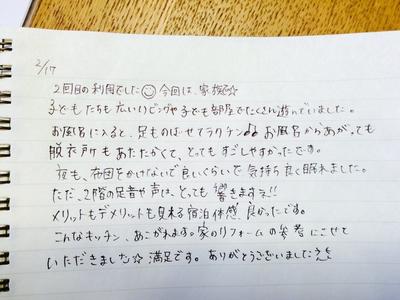 2/17
2回目の利用でした☺今回は、家族で☆
子どもたちも広いリビングや子ども部屋でたくさん遊んでいました。
お風呂に入ると、足ものばせてラクチン♫お風呂からあがっても
脱衣所もあたたかくて、とってもすごしやすかったです。
夜も、布団をかけないで良いくらいで気持ち良く眠れました。
ただ、2階の足音や声は、とっても響きますネ!!
メリットもデメリットも見れる宿泊体感、良かったです。
こんなキッチン、あこがれます。家のリフォームの参考にさせて
いただきました☆満足です。ありがとうございました